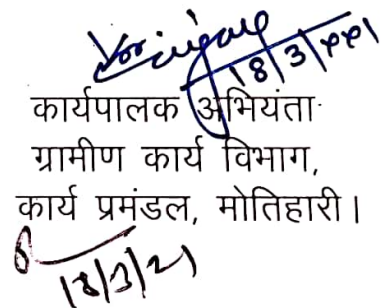 18/3/221
कार्यपालक अभियंता
ग्रामीण कार्य विभाग,
कार्य प्रमंडल, मोतिहारी।
18/3/21